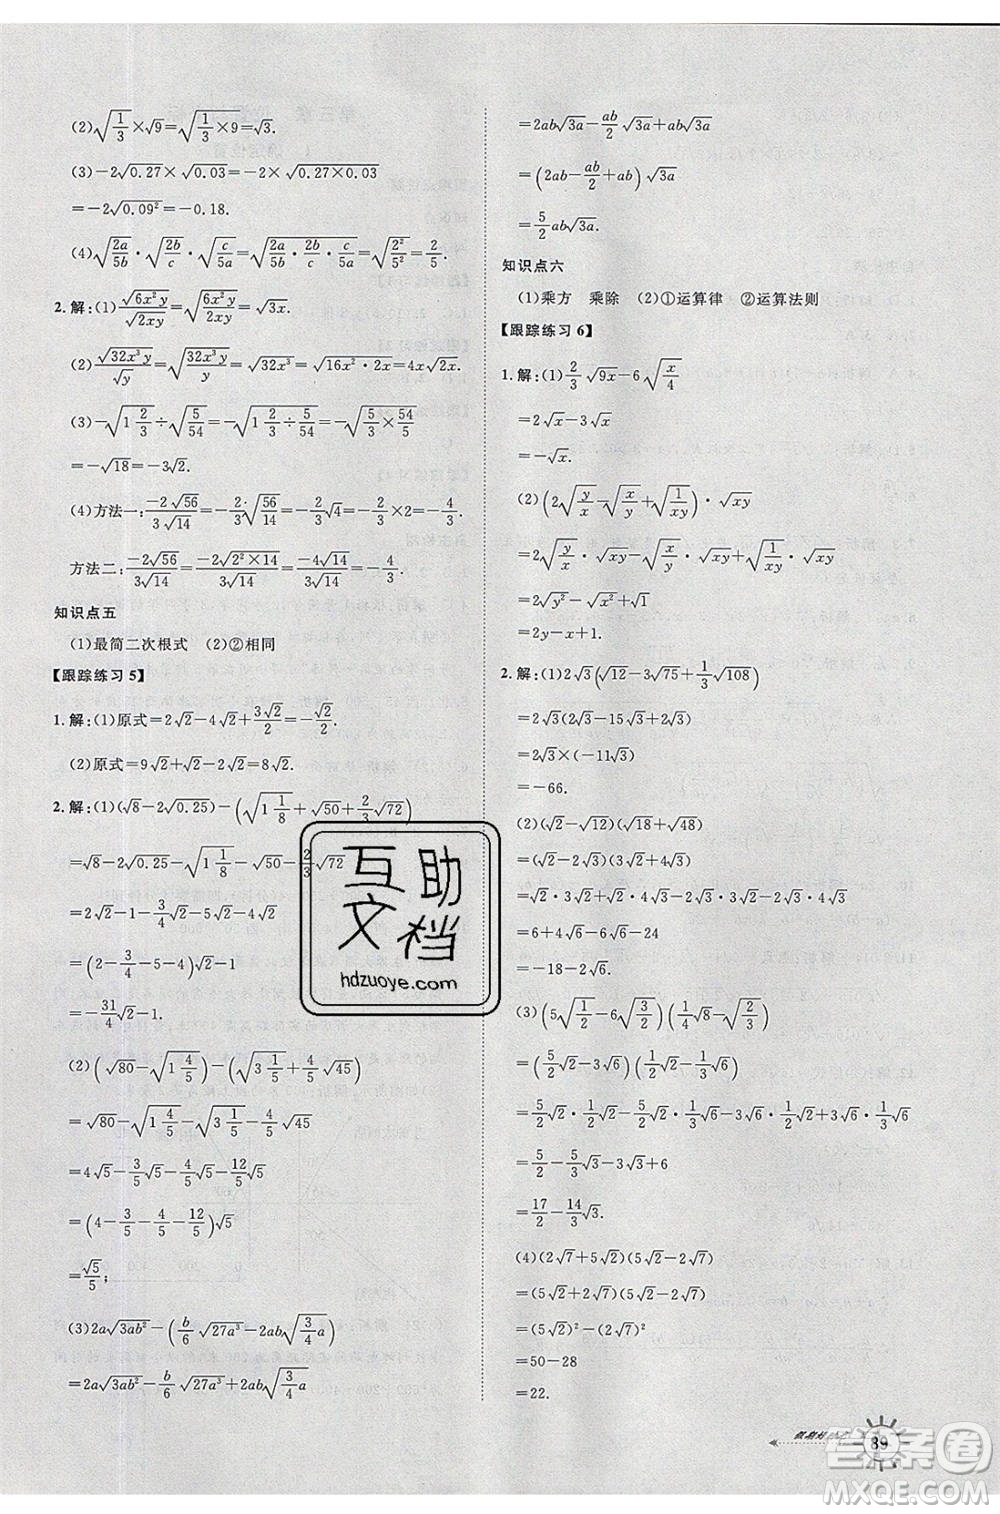 (2)√(1/3)×√9=√(1/3×9)=√3.
(3)-2√0.27×√0.03=-2×√(0.27×0.03)
=-2√(0.09²)=-0.18.
(4)√(2a/5b)·√(2b/c)·√(c/5a)=√(2a/5b·2b/c·c/5a)=√(2²/5²)=2/5.
2.解:(1)√(6x²y)/√(2xy)=√(6x²y/2xy)=√3x.
(2)√(32x³y)/√y=√(32x³y/y)=√(32x³)=√(16x²·2x)=4x√2x.
(3)-√(1 2/3)÷√(5/54)=-√(5/3÷5/54)=-√(5/3×54/5)
=-√18=-3√2.
(4)方法一:-2√56/3√14=-2/3·√(56/14)=-2/3√4=-2/3×2=-4/3.
方法二:-2√56/3√14=-2√(2²×14)/3√14=-4√14/3√14=-4/3.
知识点五
(1)最简二次根式 (2)②相同
【跟踪练习5】
1.解:(1)原式=2√2-4√2+3√2/2=-√2/2.
(2)原式=9√2+√2-2√2=8√2.
2.解:(1)(√8-2√0.25)-(√(1 1/8)+√50+2/3√72)
=√8-2√0.25-√(1 1/8)-√50-2/3√72
=2√2-1-3/4√2-5√2-4√2
=(2-3/4-5-4)√2-1
=-31/4√2-1.
(2)(√80-√(1 4/5))-(√(3 1/5)+4/5√45)
=√80-√(1 4/5)-√(3 1/5)-4/5√45
=4√5-3/5√5-4/5√5-12/5√5
=(4-3/5-4/5-12/5)√5
=√5/5;
(3)2a√(3ab²)-(b/6√(27a³)-2ab√(3/4 a))
=2a√(3ab²)-b/6√(27a³)+2ab√(3/4 a)
=2ab√3a-ab/2√3a+ab√3a
=(2ab-ab/2+ab)√3a
=5/2ab√3a.
知识点六
(1)乘方 乘除 (2)①运算律 ②运算法则
【跟踪练习6】
1.解:(1)2/3√9x-6√(x/4)
=2√x-3√x
=-√x.
(2)(2√(y/x)-√(x/y)+√(1/xy))·√xy
=2√(y/x)·√xy-√(x/y)·√xy+√(1/xy)·√xy
=2√y²-√x²+√1
=2y-x+1.
2.解:(1)2√3(√12-3√75+1/3√108)
=2√3(2√3-15√3+2√3)
=2√3×(-11√3)
=-66.
(2)(√2-√12)(√18+√48)
=(√2-2√3)(3√2+4√3)
=√2·3√2+√2·4√3-2√3·3√2-2√3·4√3
=6+4√6-6√6-24
=-18-2√6.
(3)(5√(1/2)-6√(3/2))(1/4√8-√(2/3))
=(5/2√2-3√6)(1/2√2-1/3√6)
=5/2√2·1/2√2-5/2√2·1/3√6-3√6·1/2√2+3√6·1/3√6
=5/2-5/3√3-3√3+6
=17/2-14/3√3.
(4)(2√7+5√2)(5√2-2√7)
=(5√2+2√7)(5√2-2√7)
=(5√2)²-(2√7)²
=50-28
=22.
互助
文档
hdzuoye.com
89
答案卷
MXQE.COM